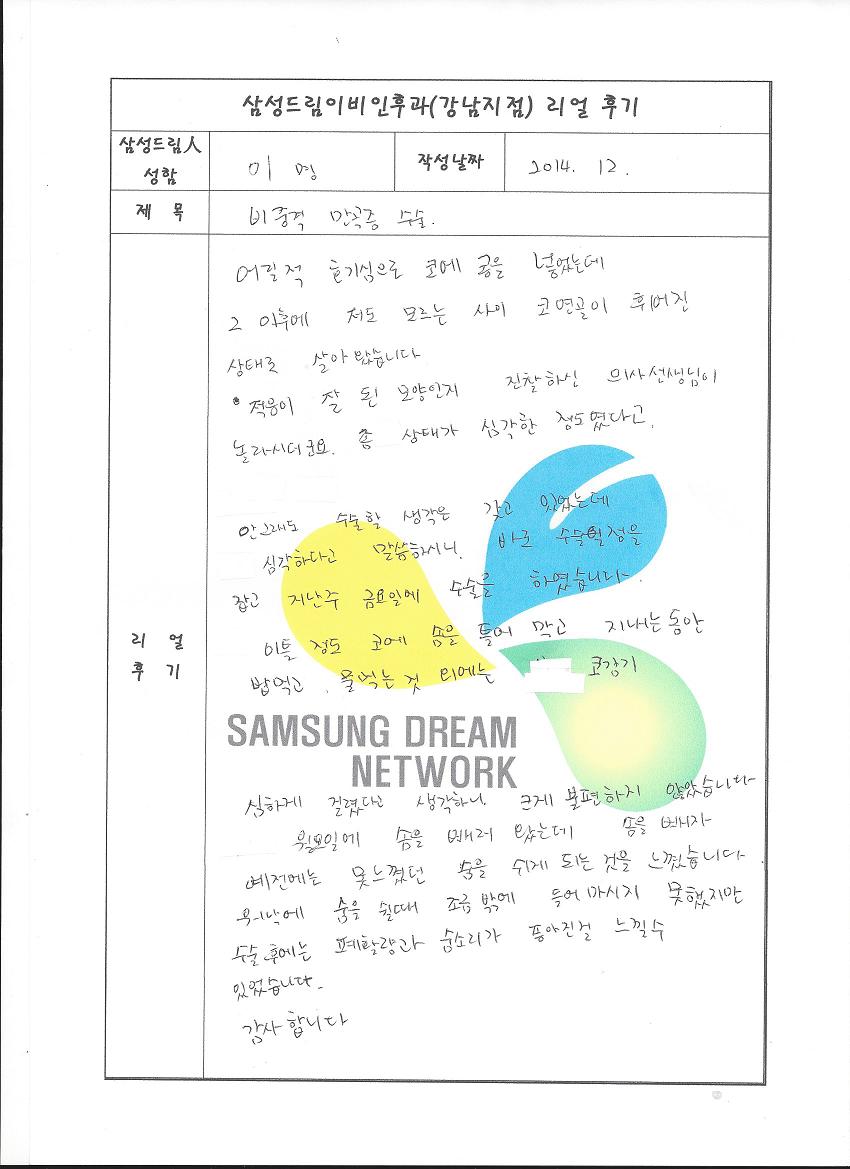 삼성드림이비인후과(강남지점) 리얼 후기
삼성드림人 성함
이 명
작성날짜
2014. 12.
제 목
비중격 만곡증 수술.
리 얼
후 기
어릴적 호기심으로 코에 콩을 넣었는데
그 이후에 저도 모르는 사이 코연골이 휘어진
상태로 살아 왔습니다
적응이 잘 된 모양인지 진찰하신 의사선생님이
놀라시더군요. 좀 상태가 심각한 정도였다고.
안그래도 수술할 생각은 갖고 있었는데
심각하다고 말씀하시니. 바로 수술일정을
잡고 지난주 금요일에 수술을 하였습니다.
이틀 정도 코에 솜을 틀어 막고 지내는동안
밥먹고, 물먹는것 외에는 코감기
SAMSUNG DREAM
NETWORK
심하게 걸렸다고 생각하니. 크게 불편하지 않았습니다
월요일에 솜을 빼러 왔는데 솜을 빼자
예전에는 못느꼈던 숨을 쉬게 되는 것을 느꼈습니다
숨을 쉴때 조금 밖에 들어 마시지 못했지만
수술후에는 폐활량과 숨소리가 좋아진걸 느낄수
있었습니다.
감사합니다